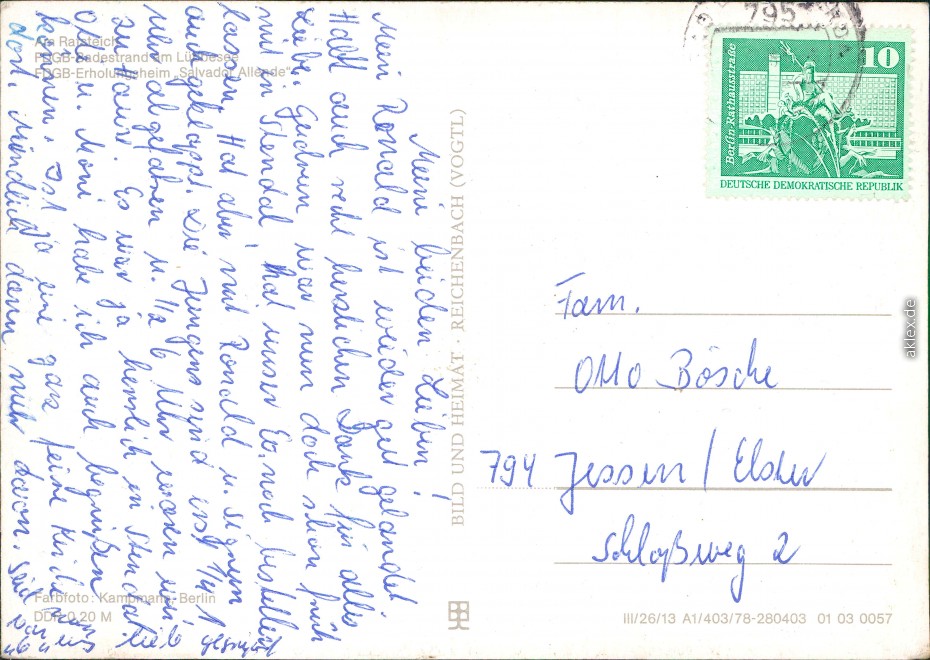 Am Ratsteich
FDGB-Badestrand am Lübbesee
FDGB-Erholungsheim „Salvador Allende"
Meine beiden Lieben!
Mein Ronald ist wieder gut gelandet
Habt auch recht herzlichen Dank für alles
Liebe. Gestern war nun doch schon früh
mit Stendal hat unser noch bestellen
lassen. Hat aber mit Ronald u.
auch geklappt. Die Jungens sind erst 1/4 1
Uhr abgefahren u. 1/2 6 Uhr waren wir
zu Haus. Es war ja herrlich in Stendal.
Otti u. Moni habe ich auch begrüßen
können. Ist ja eine ganz feine
dort. Mündlich dann mehr davon. Seid
lieb gegrüßt
von uns
Farbfoto: Kampmann, Berlin
DDR 0,20 M
BILD UND HEIMAT · REICHENBACH (VOGTL)
795
10
Berlin-Rathausstraße
DEUTSCHE DEMOKRATISCHE REPUBLIK
Fam.
Otto Bösche
794 Jessen/Elster
Schloßweg 2
III/26/13 A1/403/78-280403 01 03 0057
aklex.de